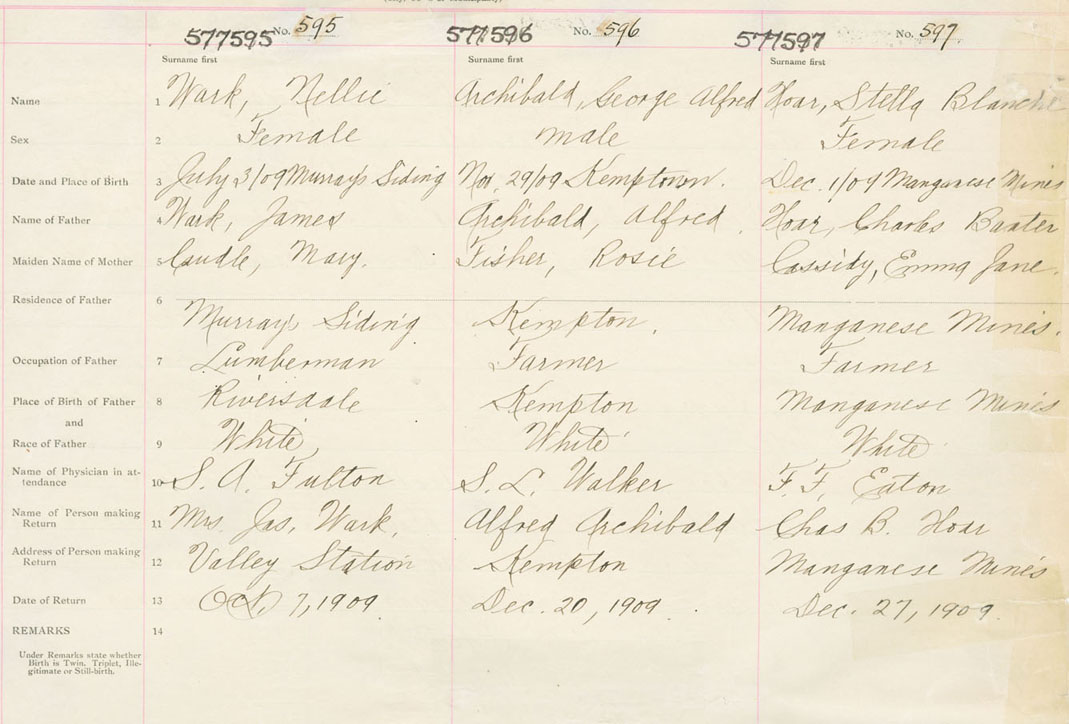 577595 No. 595 577596 No. 596 577597 No. 597
Surname first Surname first Surname first
Name 1 Wark, Nellie Archibald, George Alfred Hoar, Stella Blanche
Sex 2 Female Male Female
Date and Place of Birth 3 July 3/09 Murray's Siding Nov. 29/09 Kemptown. Dec. 1/09 Manganese Mines
Name of Father 4 Wark, James Archibald, Alfred Hoar, Charles Baxter
Maiden Name of Mother 5 Caudle, Mary. Fisher, Rosie Cassidy, Emma Jane.
Residence of Father 6
Murray's Siding Kempton. Manganese Mines.
Occupation of Father 7 Lumberman Farmer Farmer
Place of Birth of Father 8 Riversdale Kempton Manganese Mines
and
Race of Father 9 White White White
Name of Physician in at-
tendance 10 S. A. Fulton S. L. Walker F. F. Eaton
Name of Person making
Return 11 Mrs. Jas. Wark, Alfred Archibald Chas B. Hoar
Address of Person making
Return 12 Valley Station Kempton Manganese Mines
Date of Return 13 Oct. 7, 1909 Dec. 20, 1909 Dec. 27, 1909
REMARKS 14
Under Remarks state whether
Birth is Twin, Triplet, Ille-
gitimate or Still-birth.